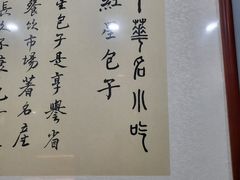 中華名小吃
紅星包子
星包子是享譽省
餐饮市场著名產